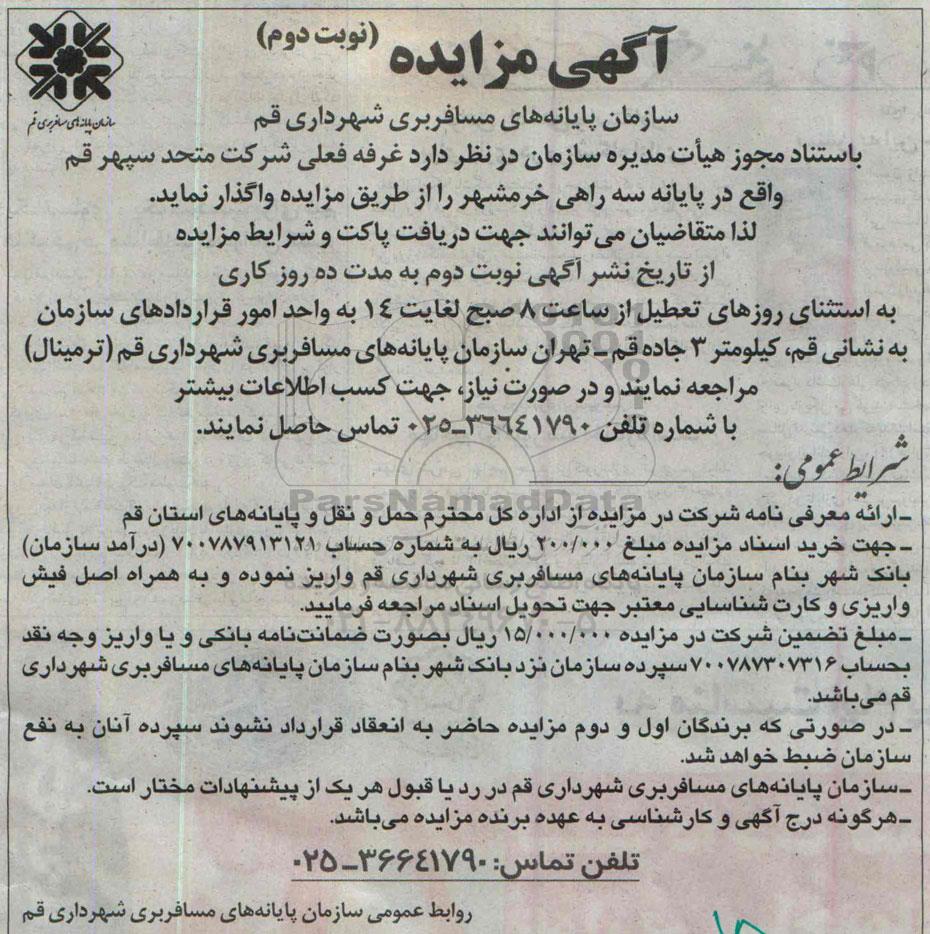 آگهی مزایده (نوبت دوم)
سازمان پایانه‌های مسافربری قم
سازمان پایانه‌های مسافربری شهرداری قم
باستناد مجوز هیأت مدیره سازمان در نظر دارد غرفه فعلی شرکت متحد سپهر قم
واقع در پایانه سه راهی خرمشهر را از طریق مزایده واگذار نماید.
لذا متقاضیان می‌توانند جهت دریافت پاکت و شرایط مزایده
از تاریخ نشر آگهی نوبت دوم به مدت ده روز کاری
به استثنای روزهای تعطیل از ساعت ۸ صبح لغایت ۱۴ به واحد امور قراردادهای سازمان
به نشانی قم، کیلومتر ۳ جاده قم ـ تهران سازمان پایانه‌های مسافربری شهرداری قم (ترمینال)
مراجعه نمایند و در صورت نیاز، جهت کسب اطلاعات بیشتر
با شماره تلفن ۳۶۶۴۱۷۹۰ـ۰۲۵ تماس حاصل نمایند.
شرایط عمومی:
ParsNamadData
ـ ارائه معرفی نامه شرکت در مزایده از اداره کل محترم حمل و نقل و پایانه‌های استان قم
ـ جهت خرید اسناد مزایده مبلغ ۲۰۰/۰۰۰ ریال به شماره حساب ۷۰۰۷۸۷۹۱۳۱۲۱ (درآمد سازمان)
بانک شهر بنام سازمان پایانه‌های مسافربری شهرداری قم واریز نموده و به همراه اصل فیش
واریزی و کارت شناسایی معتبر جهت تحویل اسناد مراجعه فرمایید.
ـ مبلغ تضمین شرکت در مزایده ۱۵/۰۰۰/۰۰۰ ریال بصورت ضمانت‌نامه بانکی و یا واریز وجه نقد
بحساب ۷۰۰۷۸۷۳۰۷۳۱۶ سپرده سازمان نزد بانک شهر بنام سازمان پایانه‌های مسافربری شهرداری
قم می‌باشد.
ـ در صورتی که برندگان اول و دوم مزایده حاضر به انعقاد قرارداد نشوند سپرده آنان به نفع
سازمان ضبط خواهد شد.
ـ سازمان پایانه‌های مسافربری شهرداری قم در رد یا قبول هر یک از پیشنهادات مختار است.
ـ هرگونه درج آگهی و کارشناسی به عهده برنده مزایده می‌باشد.
تلفن تماس: ۳۶۶۴۱۷۹۰ـ۰۲۵
روابط عمومی سازمان پایانه‌های مسافربری شهرداری قم